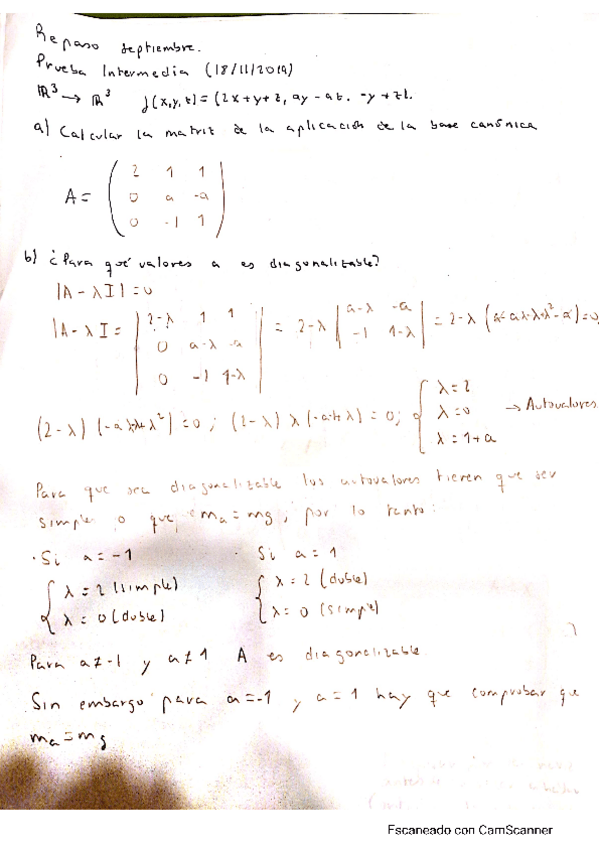 Repaso septiembre.
Prueba Intermedia (18/11/2019)
ℝ³ → ℝ³ f(x,y,z) = (2x+y+z, ay-az, -y+z).
a) Calcular la matriz de la aplicación de la base canónica
A = ( 2 1 1
0 a -a
0 -1 1 )
b) ¿Para qué valores a es diagonalizable?
|A - λI| = 0
|A - λI = | 2-λ 1 1 | = 2-λ | a-λ -a | = 2-λ
0 a-λ -a
-1 1-λ
0 -1 1-λ
(2-λ) = 0 ; (2-λ) λ (-a-1+λ) = 0; { λ = 2
λ = 0 → Autovalores
λ = 1+a
Para que sea diagonalizable los autovalores tienen que ser
simples o que ma = mg, por lo tanto:
· Si a = -1 · Si a = 1
{ λ = 2 (simple) { λ = 2 (doble)
λ = 0 (doble) λ = 0 (simple)
Para a ≠ -1 y a ≠ 1 A es diagonalizable
Sin embargo para a = -1 y a = 1 hay que comprobar que
ma = mg
Escaneado con CamScanner